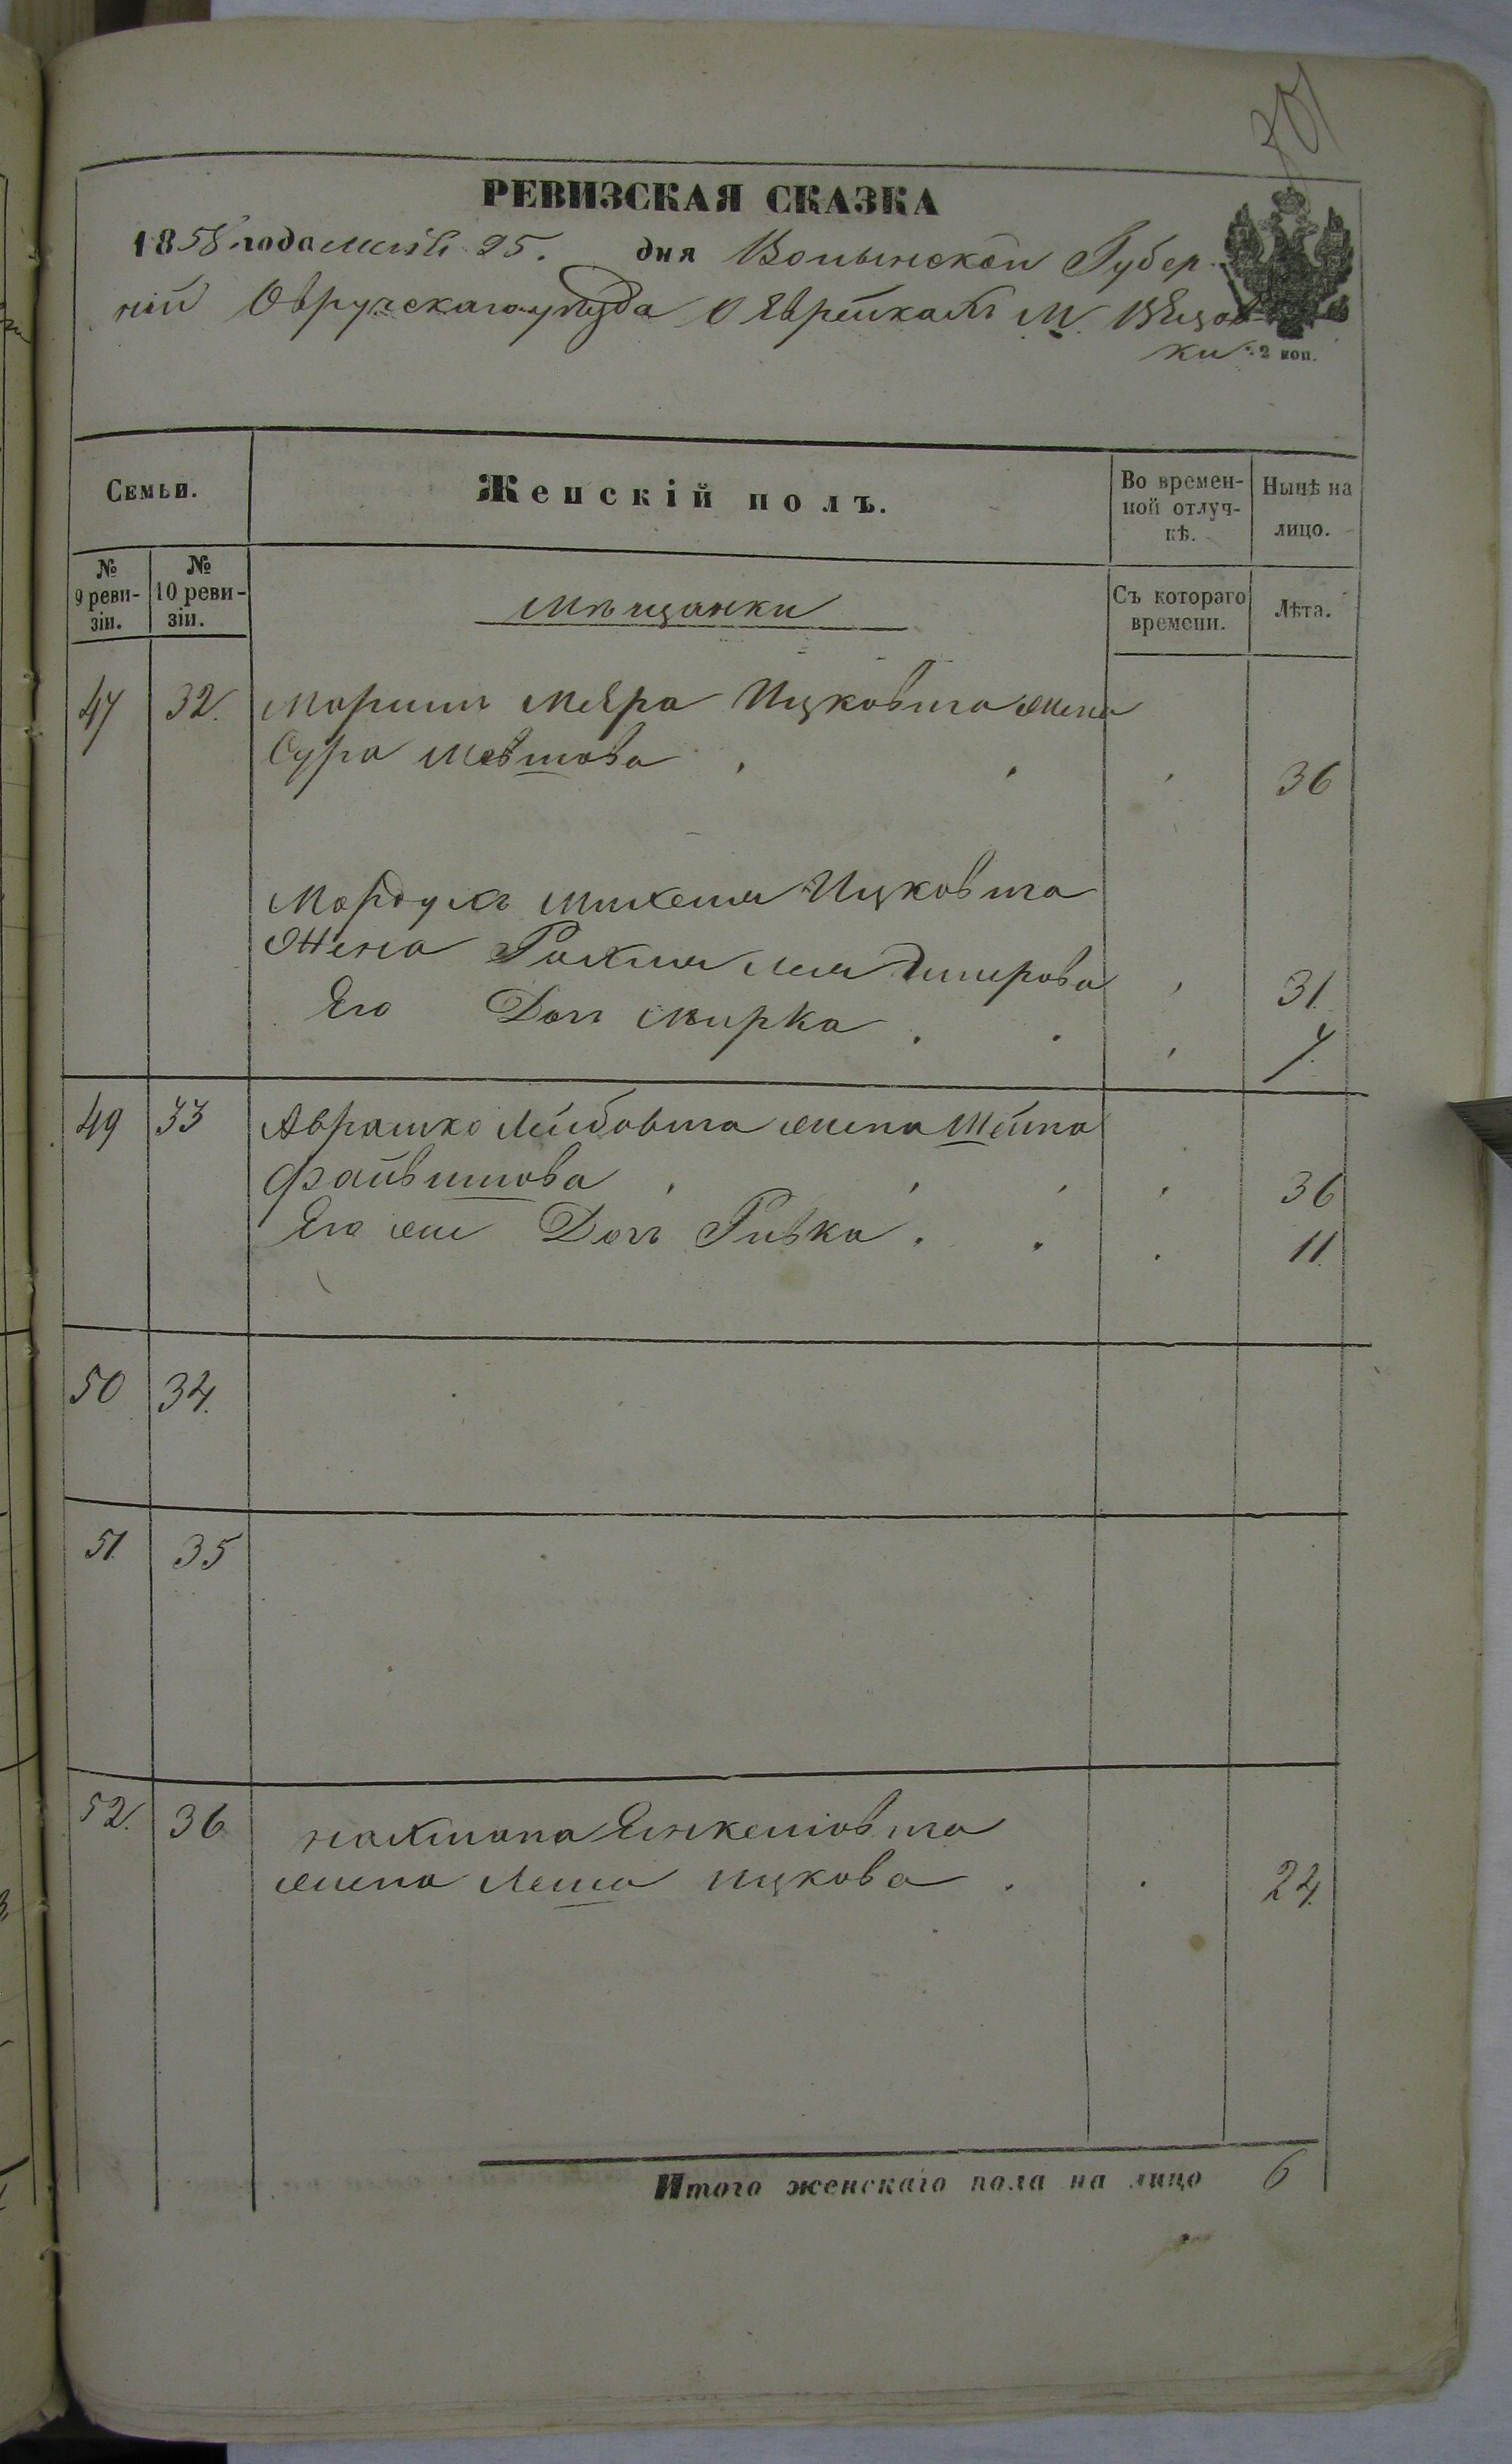 701
РЕВИЗСКАЯ СКАЗКА
1858 года 25. дня Волынской Губер-
ніи Овручскаго уезда О Еврейкахъ М.
ки 2 коп.
Семьи.
Женскій полъ.
Во времен-
ной отлуч-
кѣ.
Нынѣ на
лицо.
№
9 реви-
зіи.
№
10 реви-
зіи.
Мѣщанки
Съ котораго
времени.
Лѣта.
47 32. Меера Ицковича жена
Сура 36
Мордухъ Ицковича
Жена Рахля Лея 31.
Его Доч Мирка 7.
49 33 Аврашко Лейбовича жена Шейна
Файвишова 36
Его же Доч Ривка. 11
50 34.
51. 35
52. 36 Нахмана Янкелiовича
жена Леша Ицкова 24.
Итого женскаго пола на лицо 6